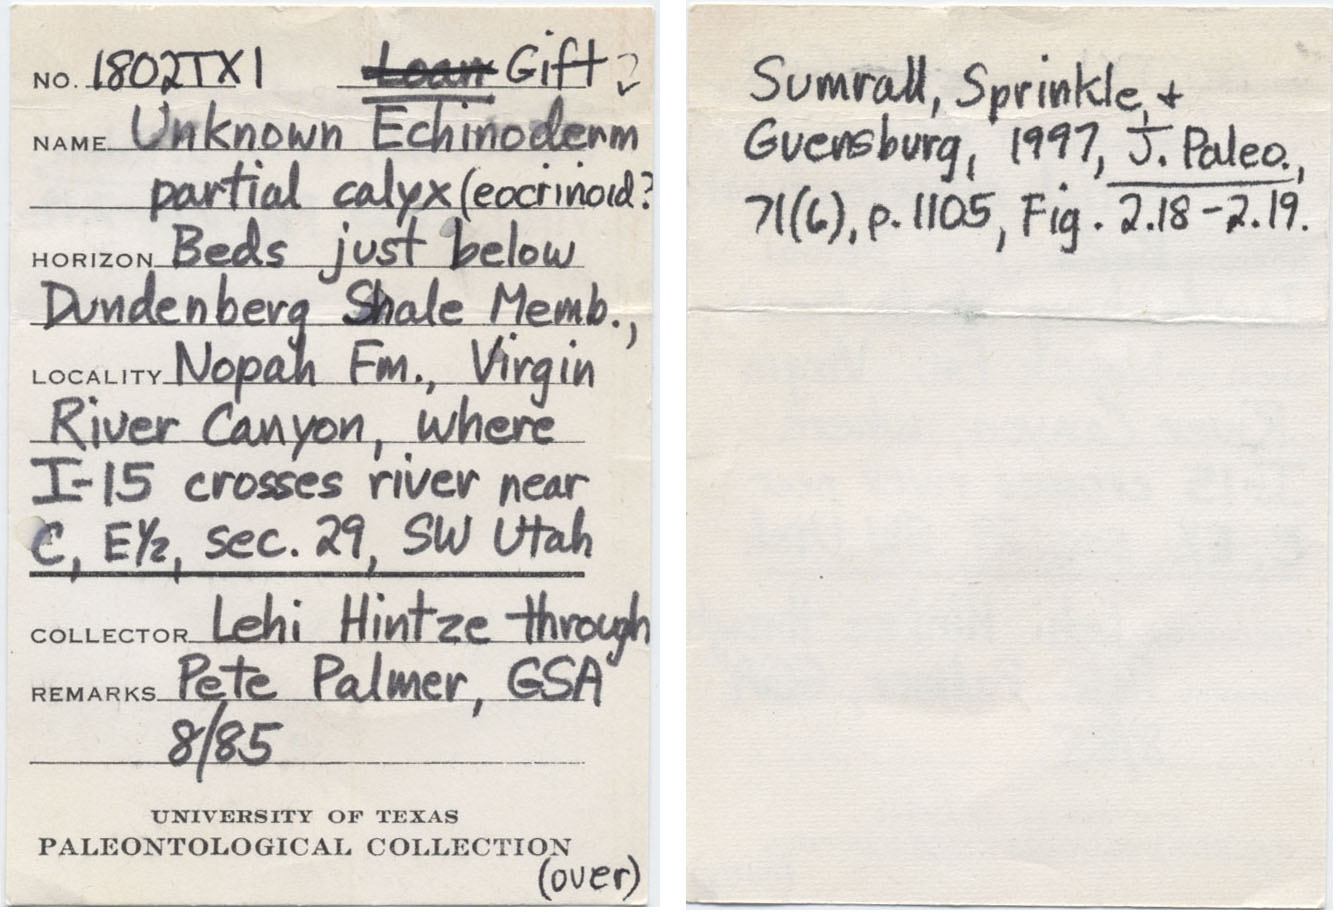 NO. 1802TX1 Loan Gift?
NAME Unknown Echinoderm
partial calyx (eocrinoid?
HORIZON Beds just below
Dundenberg Shale Memb.,
LOCALITY Nopah Fm., Virgin
River Canyon, where
I-15 crosses river near
C, E½, sec. 29, SW Utah
COLLECTOR Lehi Hintze through
REMARKS Pete Palmer, GSA
8/85
UNIVERSITY OF TEXAS
PALEONTOLOGICAL COLLECTION
(over)
Sumrall, Sprinkle, +
Guensburg, 1997, J. Paleo.,
71(6), p. 1105, Fig. 2.18-2.19.